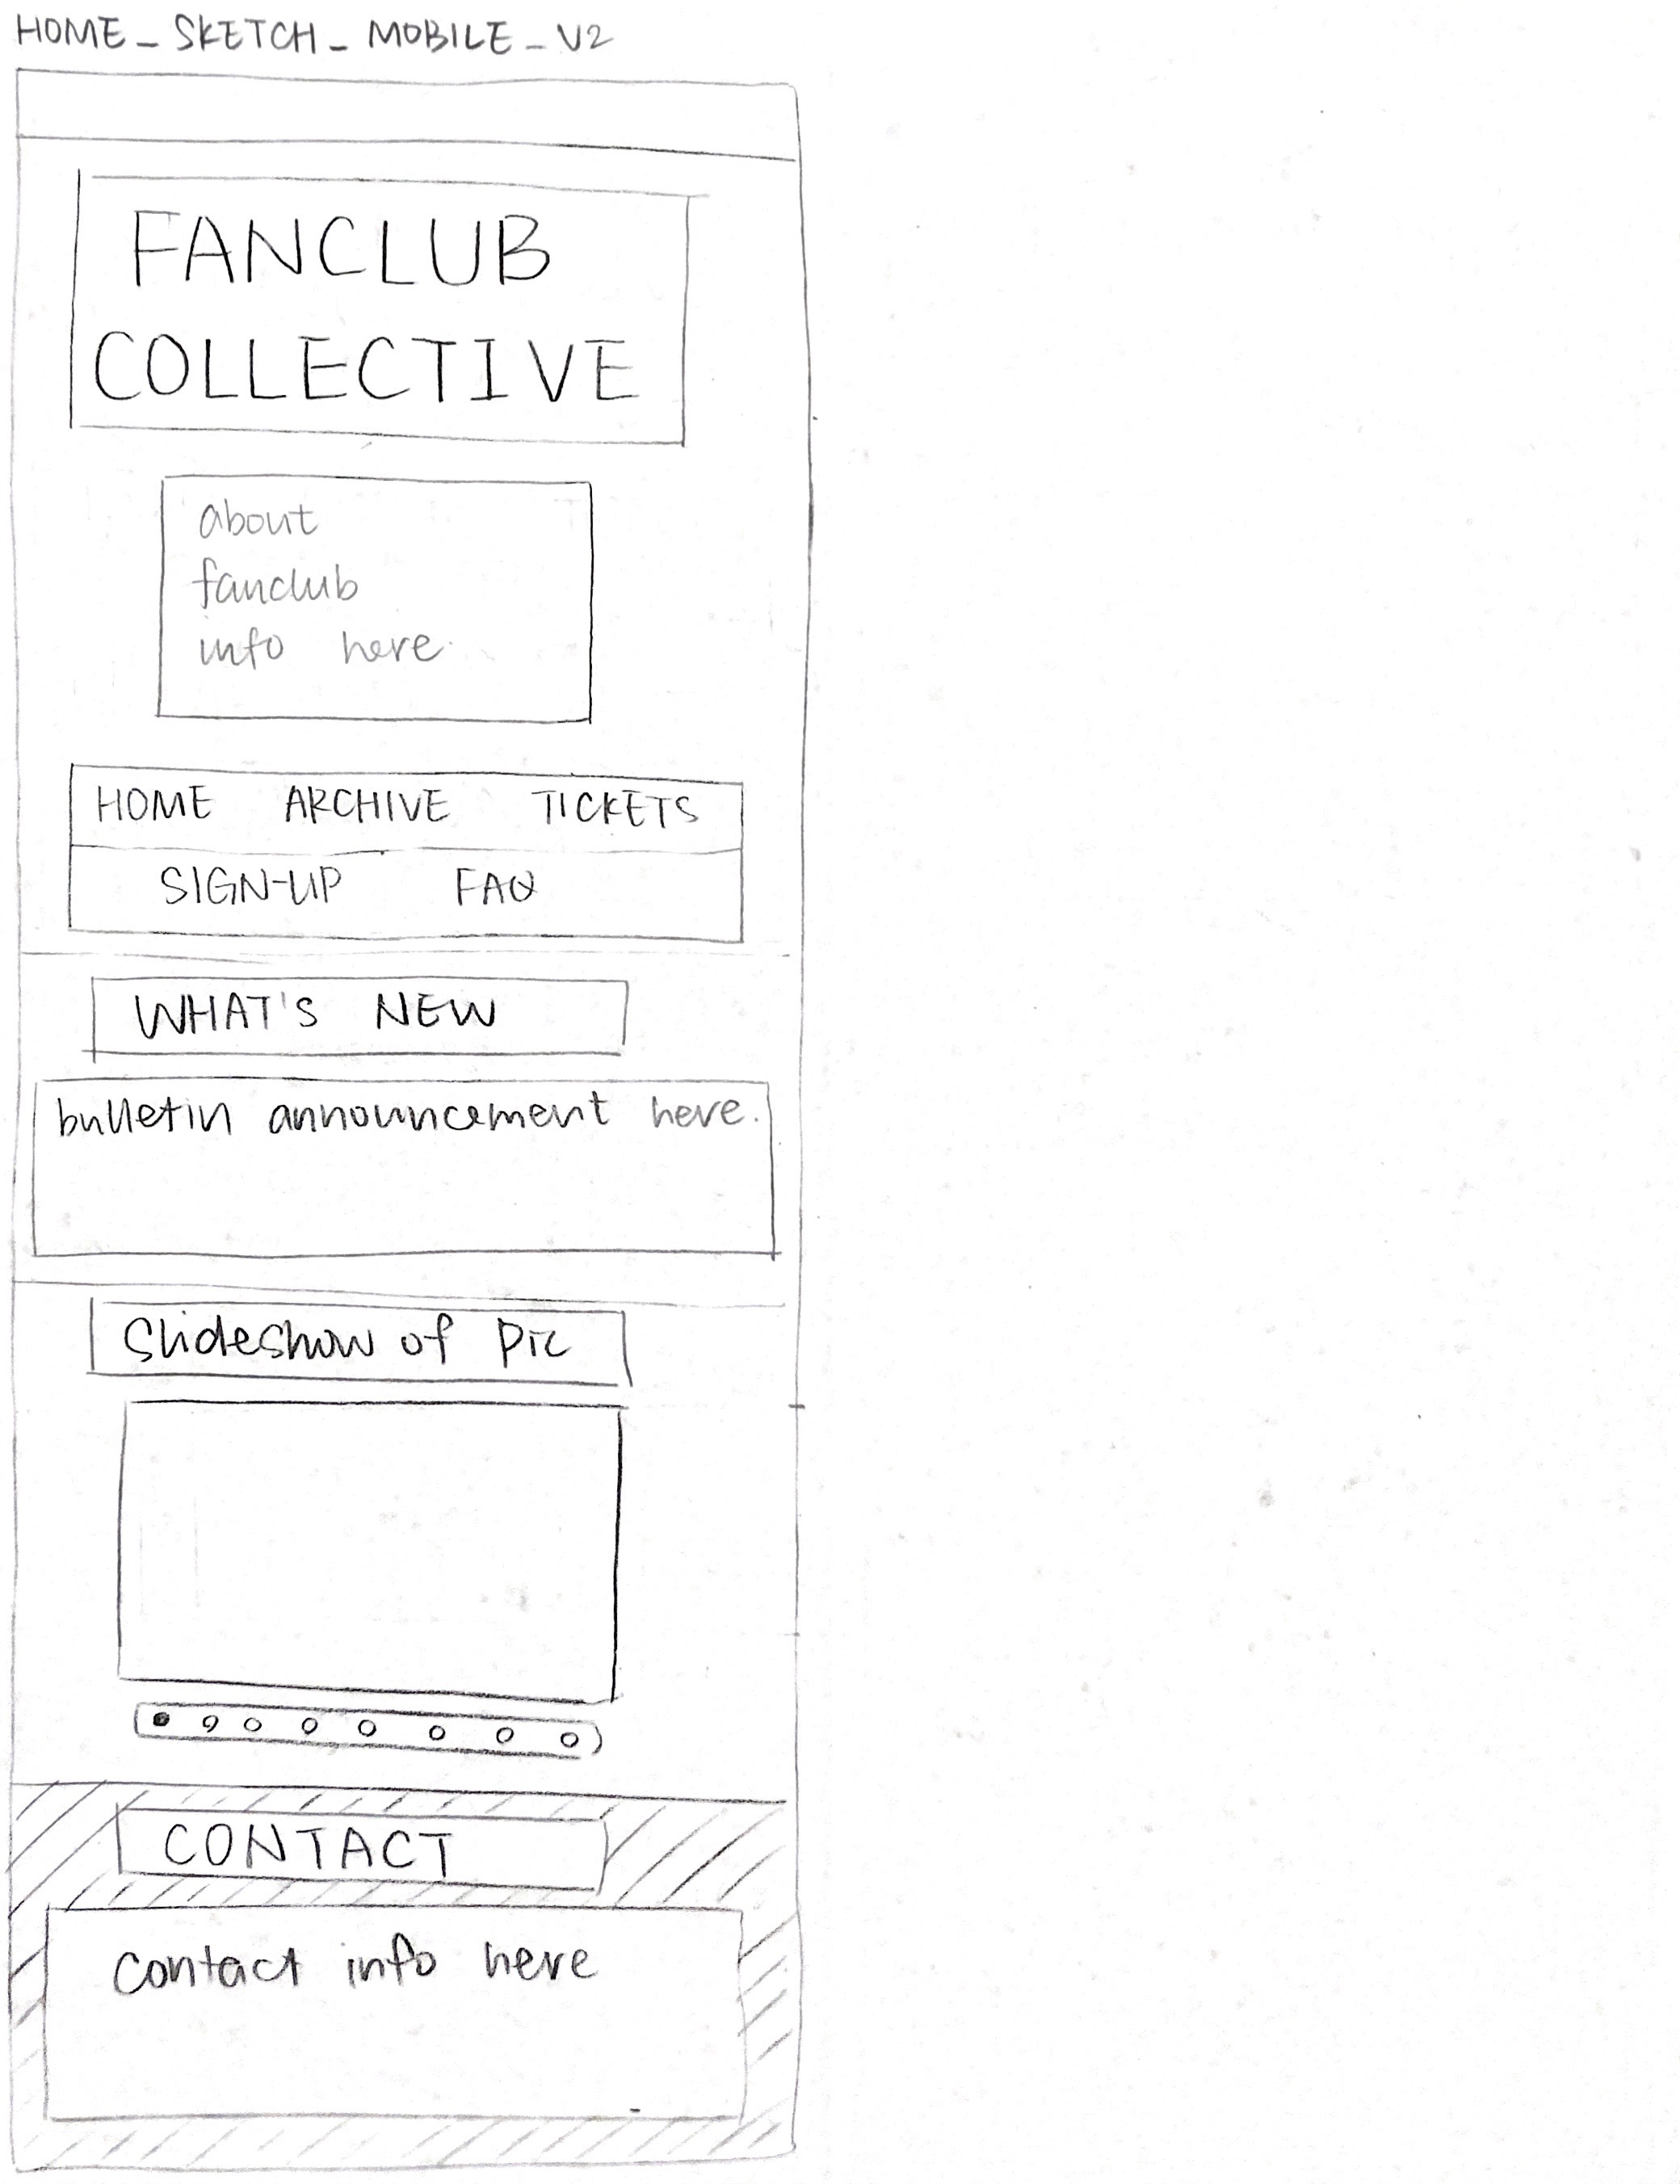 HOME_SKETCH_MOBILE_V2
FANCLUB
COLLECTIVE
about
fanclub
info here.
HOME ARCHIVE TICKETS
SIGN-UP FAQ
WHAT'S NEW
bulletin announcement here.
Slideshow of pic
CONTACT
contact info here